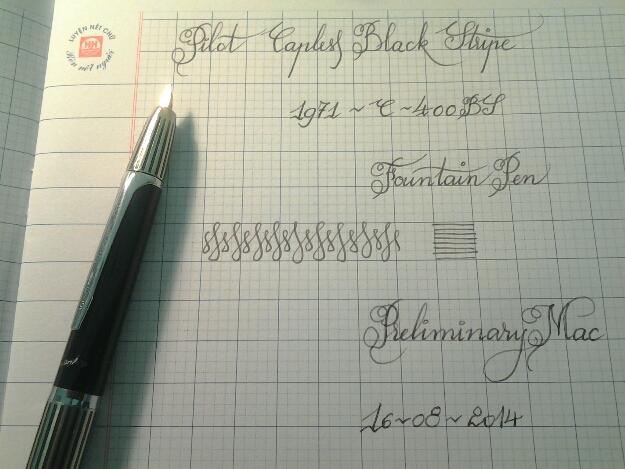 LUYỆN NÉT CHỮ
Rèn nết người
Pilot Capless Black Stripe
1971 ~ C ~ 400BS
Fountain Pen
Preliminary Mac
16~08~2014